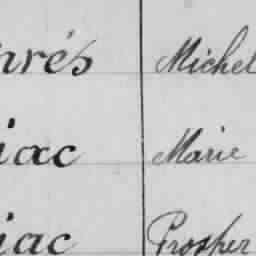 nrés Michel
iac Marie
iac Prosper